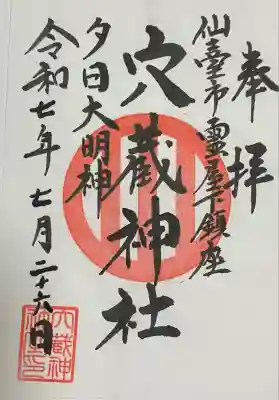 奉拝
仙臺市霊屋下鎮座
穴蔵神社
夕日大明神
令和七年七月二十六日
穴蔵神社之印